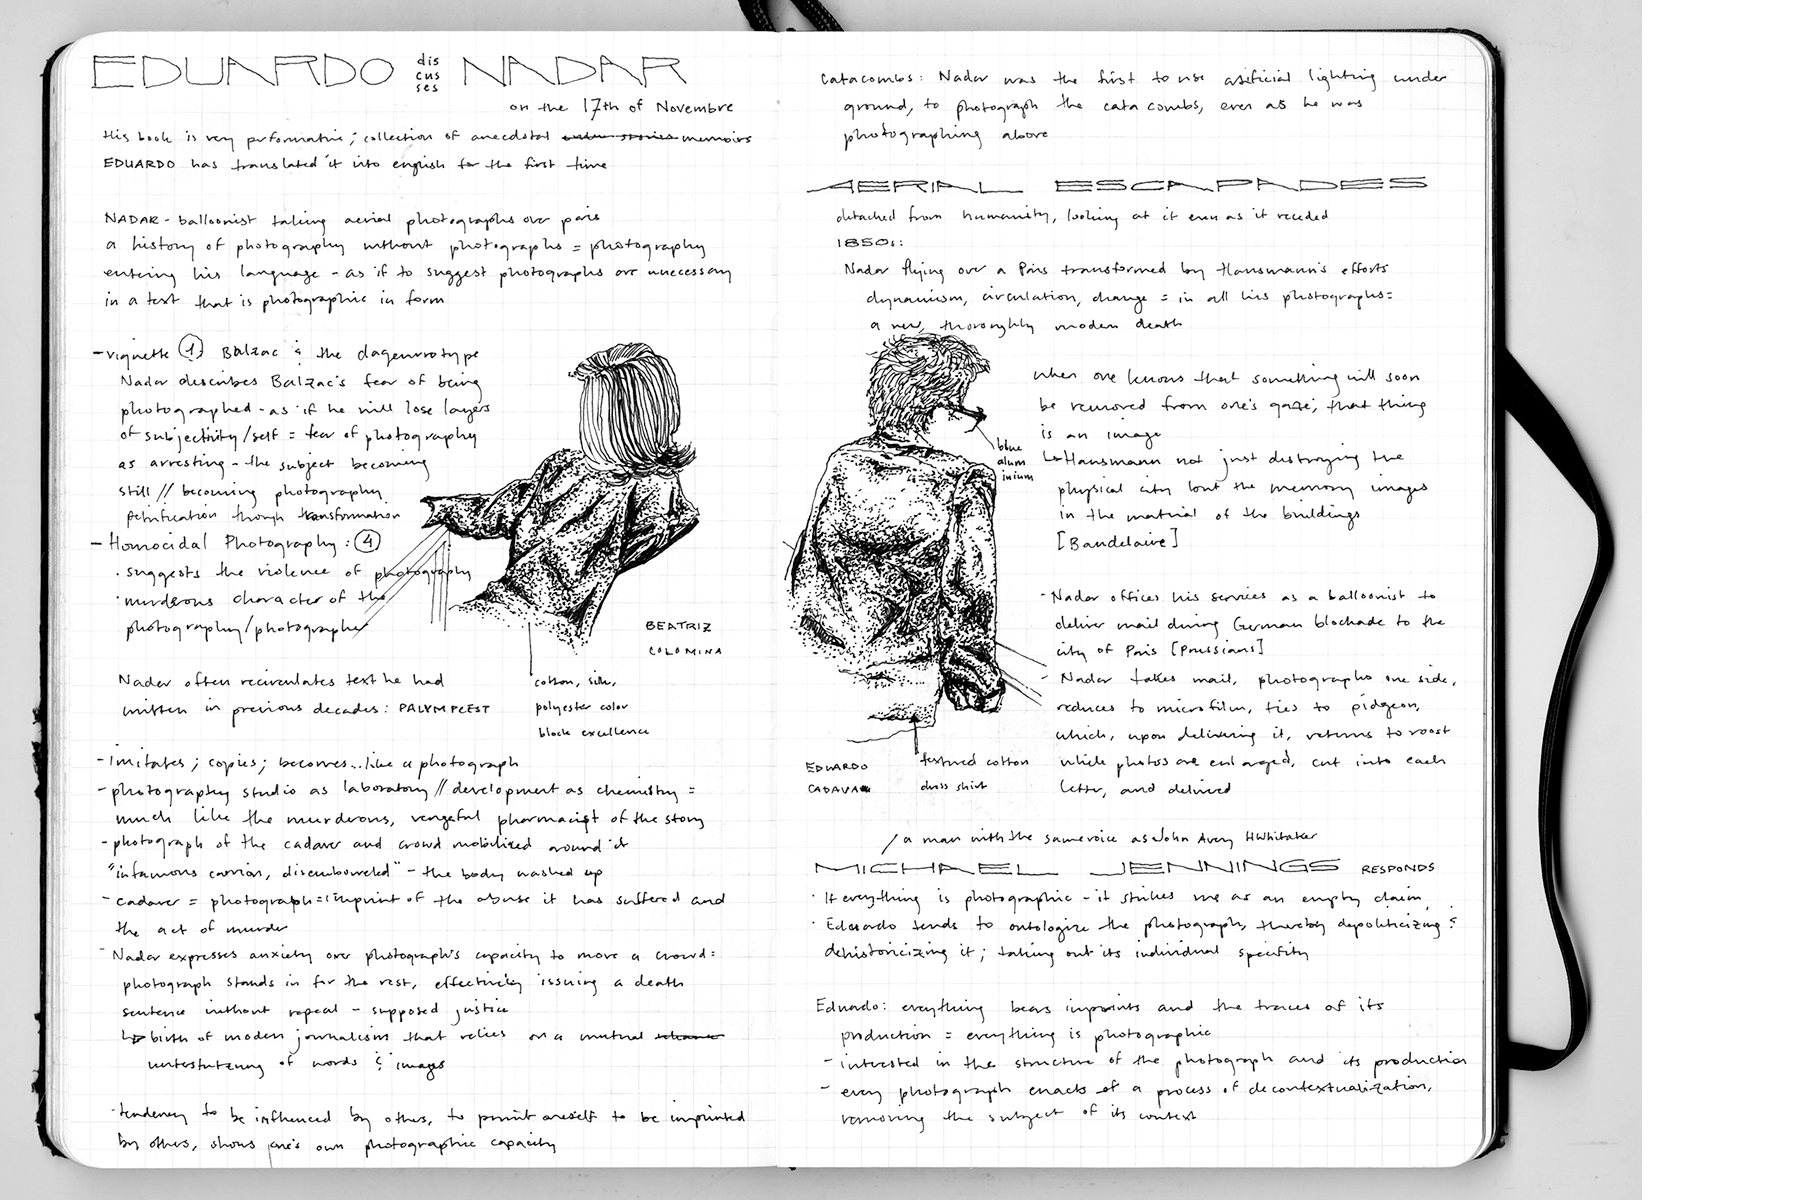 EDUARDO dis
cus
ses NADAR
on the 17th of Novembre
His book is very performative; collection of anecdotal memoirs
EDUARDO has translated it into english for the first time
NADAR - balloonist taking aerial photographs over paris
a history of photography without photographs = photography
entering his language - as if to suggest photographs are unecessary
in a text that is photographic in form
- vignette 1. Balzac & the daguerrotype
Nadar describes Balzac's fear of being
photographed - as if he will lose layers
of subjectivity/self = fear of photography
as arresting - the subject becoming
still // becoming photography
petrification through transformation
- Homocidal Photography: 4
· suggests the violence of photography
· murderous character of the
photography/photographer
BEATRIZ
COLOMINA
Nadar often recirculates text he had
written in previous decades: PALYMPCEST
cotton, silk,
polyester color
block excellence
- imitates; copies; becomes...like a photograph
- photography studio as laboratory // development as chemistry =
much like the murderous, vengeful pharmacist of the story
- photograph of the cadaver and crowd mobilized around it
"infamous carrion, disembowled" - the body washed up
- cadaver = photograph = imprint of the abuse it has suffered and
the act of murder
- Nadar expresses anxiety over photograph's capacity to move a crowd:
photograph stands in for the rest, effectively issuing a death
sentence without repeal - supposed justice
↳ birth of modern journalism that relies on a mutual
unterstutzung of words & images
· tendency to be influenced by others, to permit oneself to be imprinted
by others, shows one's own photographic capacity
catacombs: Nadar was the first to use artificial lighting under
ground, to photograph the catacombs, even as he was
photographing above
AERIAL ESCAPADES
detached from humanity, looking at it even as it receded
1850s:
Nadar flying over a Paris transformed by Hausmann's efforts
dynamism, circulation, change = in all his photographs =
a new, thoroughly modern death
when one knows that something will soon
be removed from one's gaze, that thing
is an image
↳ Hausmann not just destroying the
physical city but the memory images
in the material of the buildings
[Baudelaire]
blue
alum
inium
- Nadar offices his services as a balloonist to
deliver mail during German blockade to the
city of Paris [Prussians]
- Nadar takes mail, photographs one side,
reduces to microfilm, ties to pidgeon,
which, upon delivering it, returns to roost
while photos are enlarged, cut into each
letter, and delivered
EDUARDO
CADAVA
textured cotton
dress shirt
/ a man with the same voice as John Avery Whitaker
MICHAEL JENNINGS RESPONDS
· If everything is photographic - it strikes me as an empty claim
· Eduardo tends to ontologize the photograph, thereby depoliticizing &
dehistoricizing it; taking out its individual specifity
Eduardo: everything bears imprints and the traces of its
production = everything is photographic
- interested in the structure of the photograph and its production
- every photograph enacts of a process of decontextualization,
removing the subject of its context